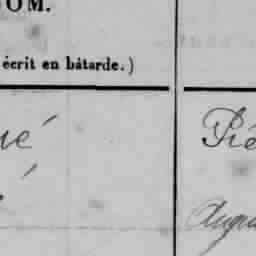 OM.
écrit en bâtarde.)
ué
é
Pié
Augus